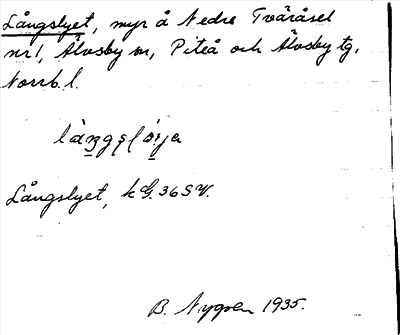 Långslyet, myr å Nedre Tväråsel
nr 1, Älvsby sn, Piteå och Älvsby tg,
Norrb. l.
Långslyet, k G. 36 SV.
B. Nygren 1935.